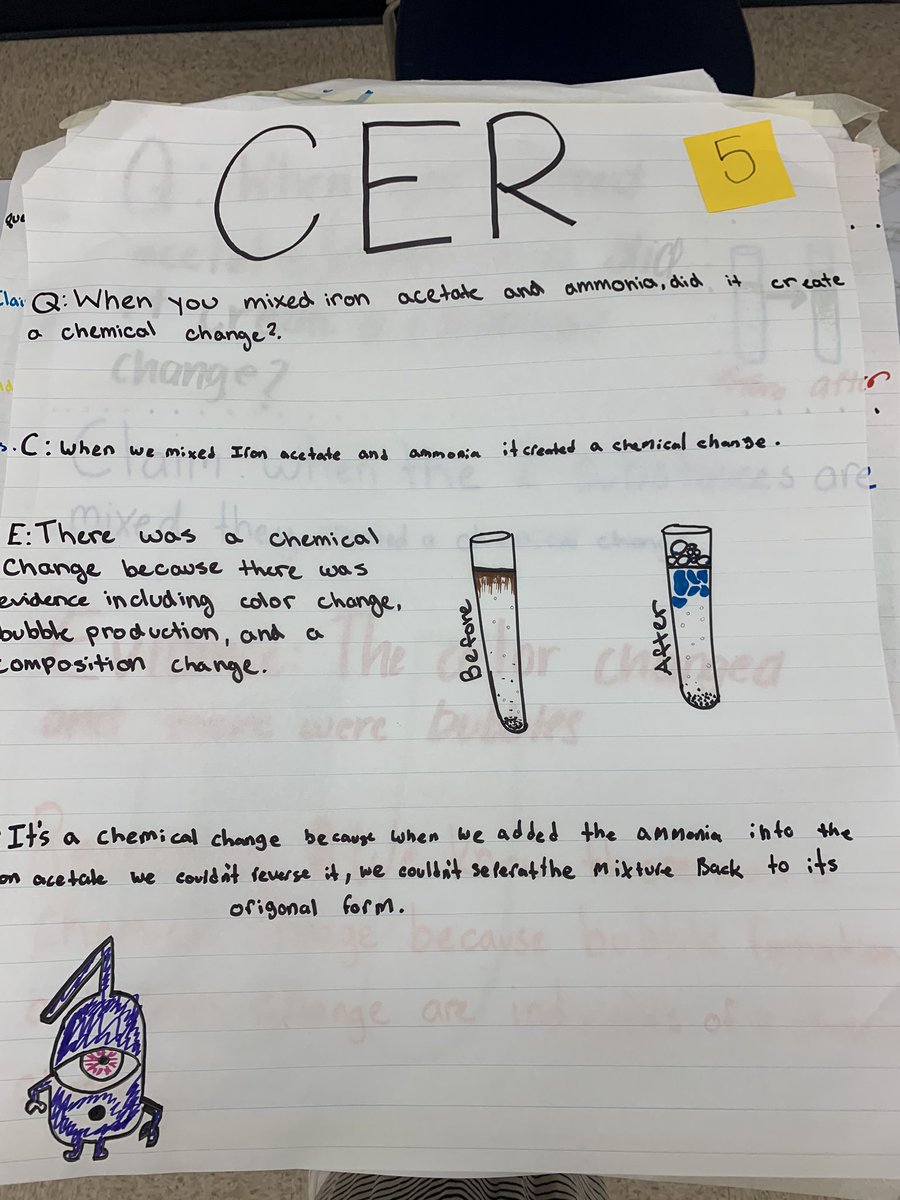 CER
5
que
Clai
Q: When you mixed iron acetate and ammonia, did it create
a chemical change?
change?
C: When we mixed Iron acetate and ammonia it created a chemical change.
E: There was a chemical
Change because there was
evidence including color change,
bubble production, and a
composition change.
Before
After
were bubbles
It's a chemical change because when we added the ammonia into the
on acetate we couldn't reverse it, we couldn't seferat the mixture Back to its
origonal form.